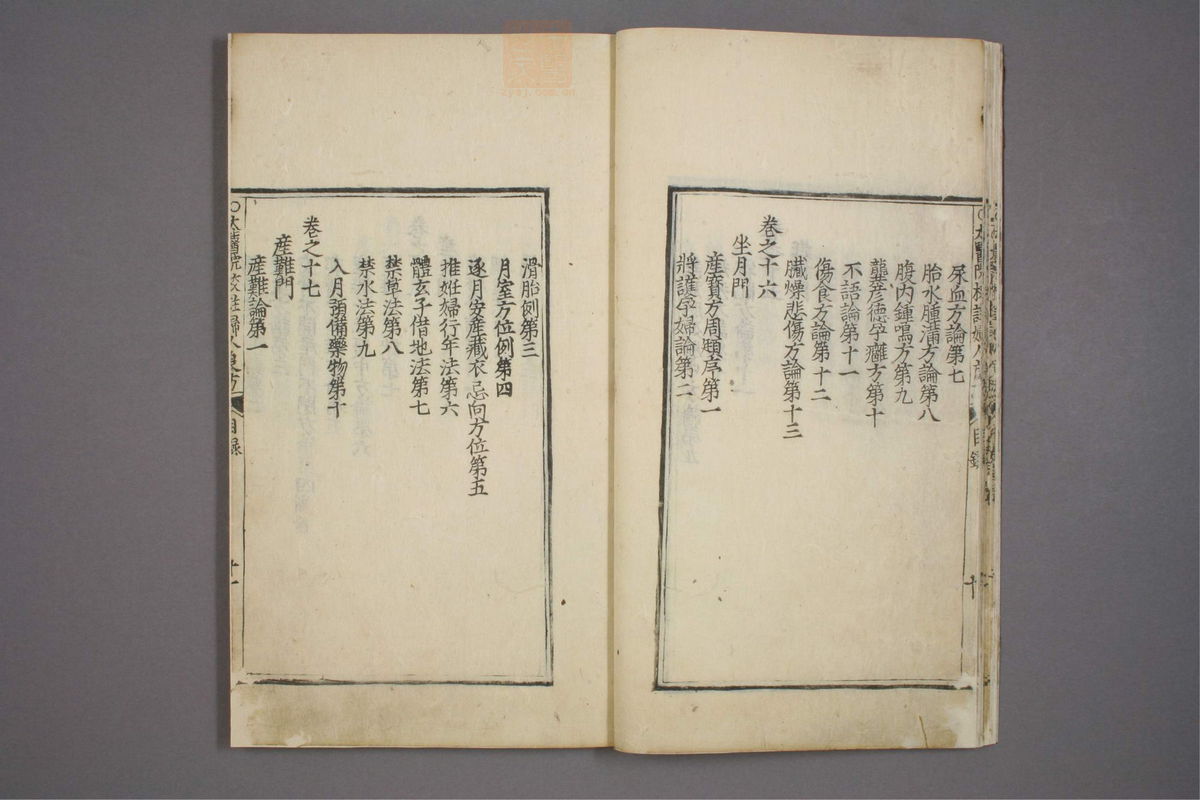 尿血方論第七
胎水腫滿方論第八
腹内鍾鳴方第九
龔彦德孕癰方第十
不語論第十一
傷食方論第十二
臟燥悲傷方論第十三
卷之十六
坐月門
産寳方周頲序第一
將護孕婦論第二
目錄
十
滑胎例第三
月室方位例第四
逐月安産藏衣忌向方位第五
推姙婦行年法第六
體玄子借地法第七
禁草法第八
禁水法第九
入月預備藥物第十
卷之十七
産難門
産難論第一
○太醫院校註婦人良方
目録
十一